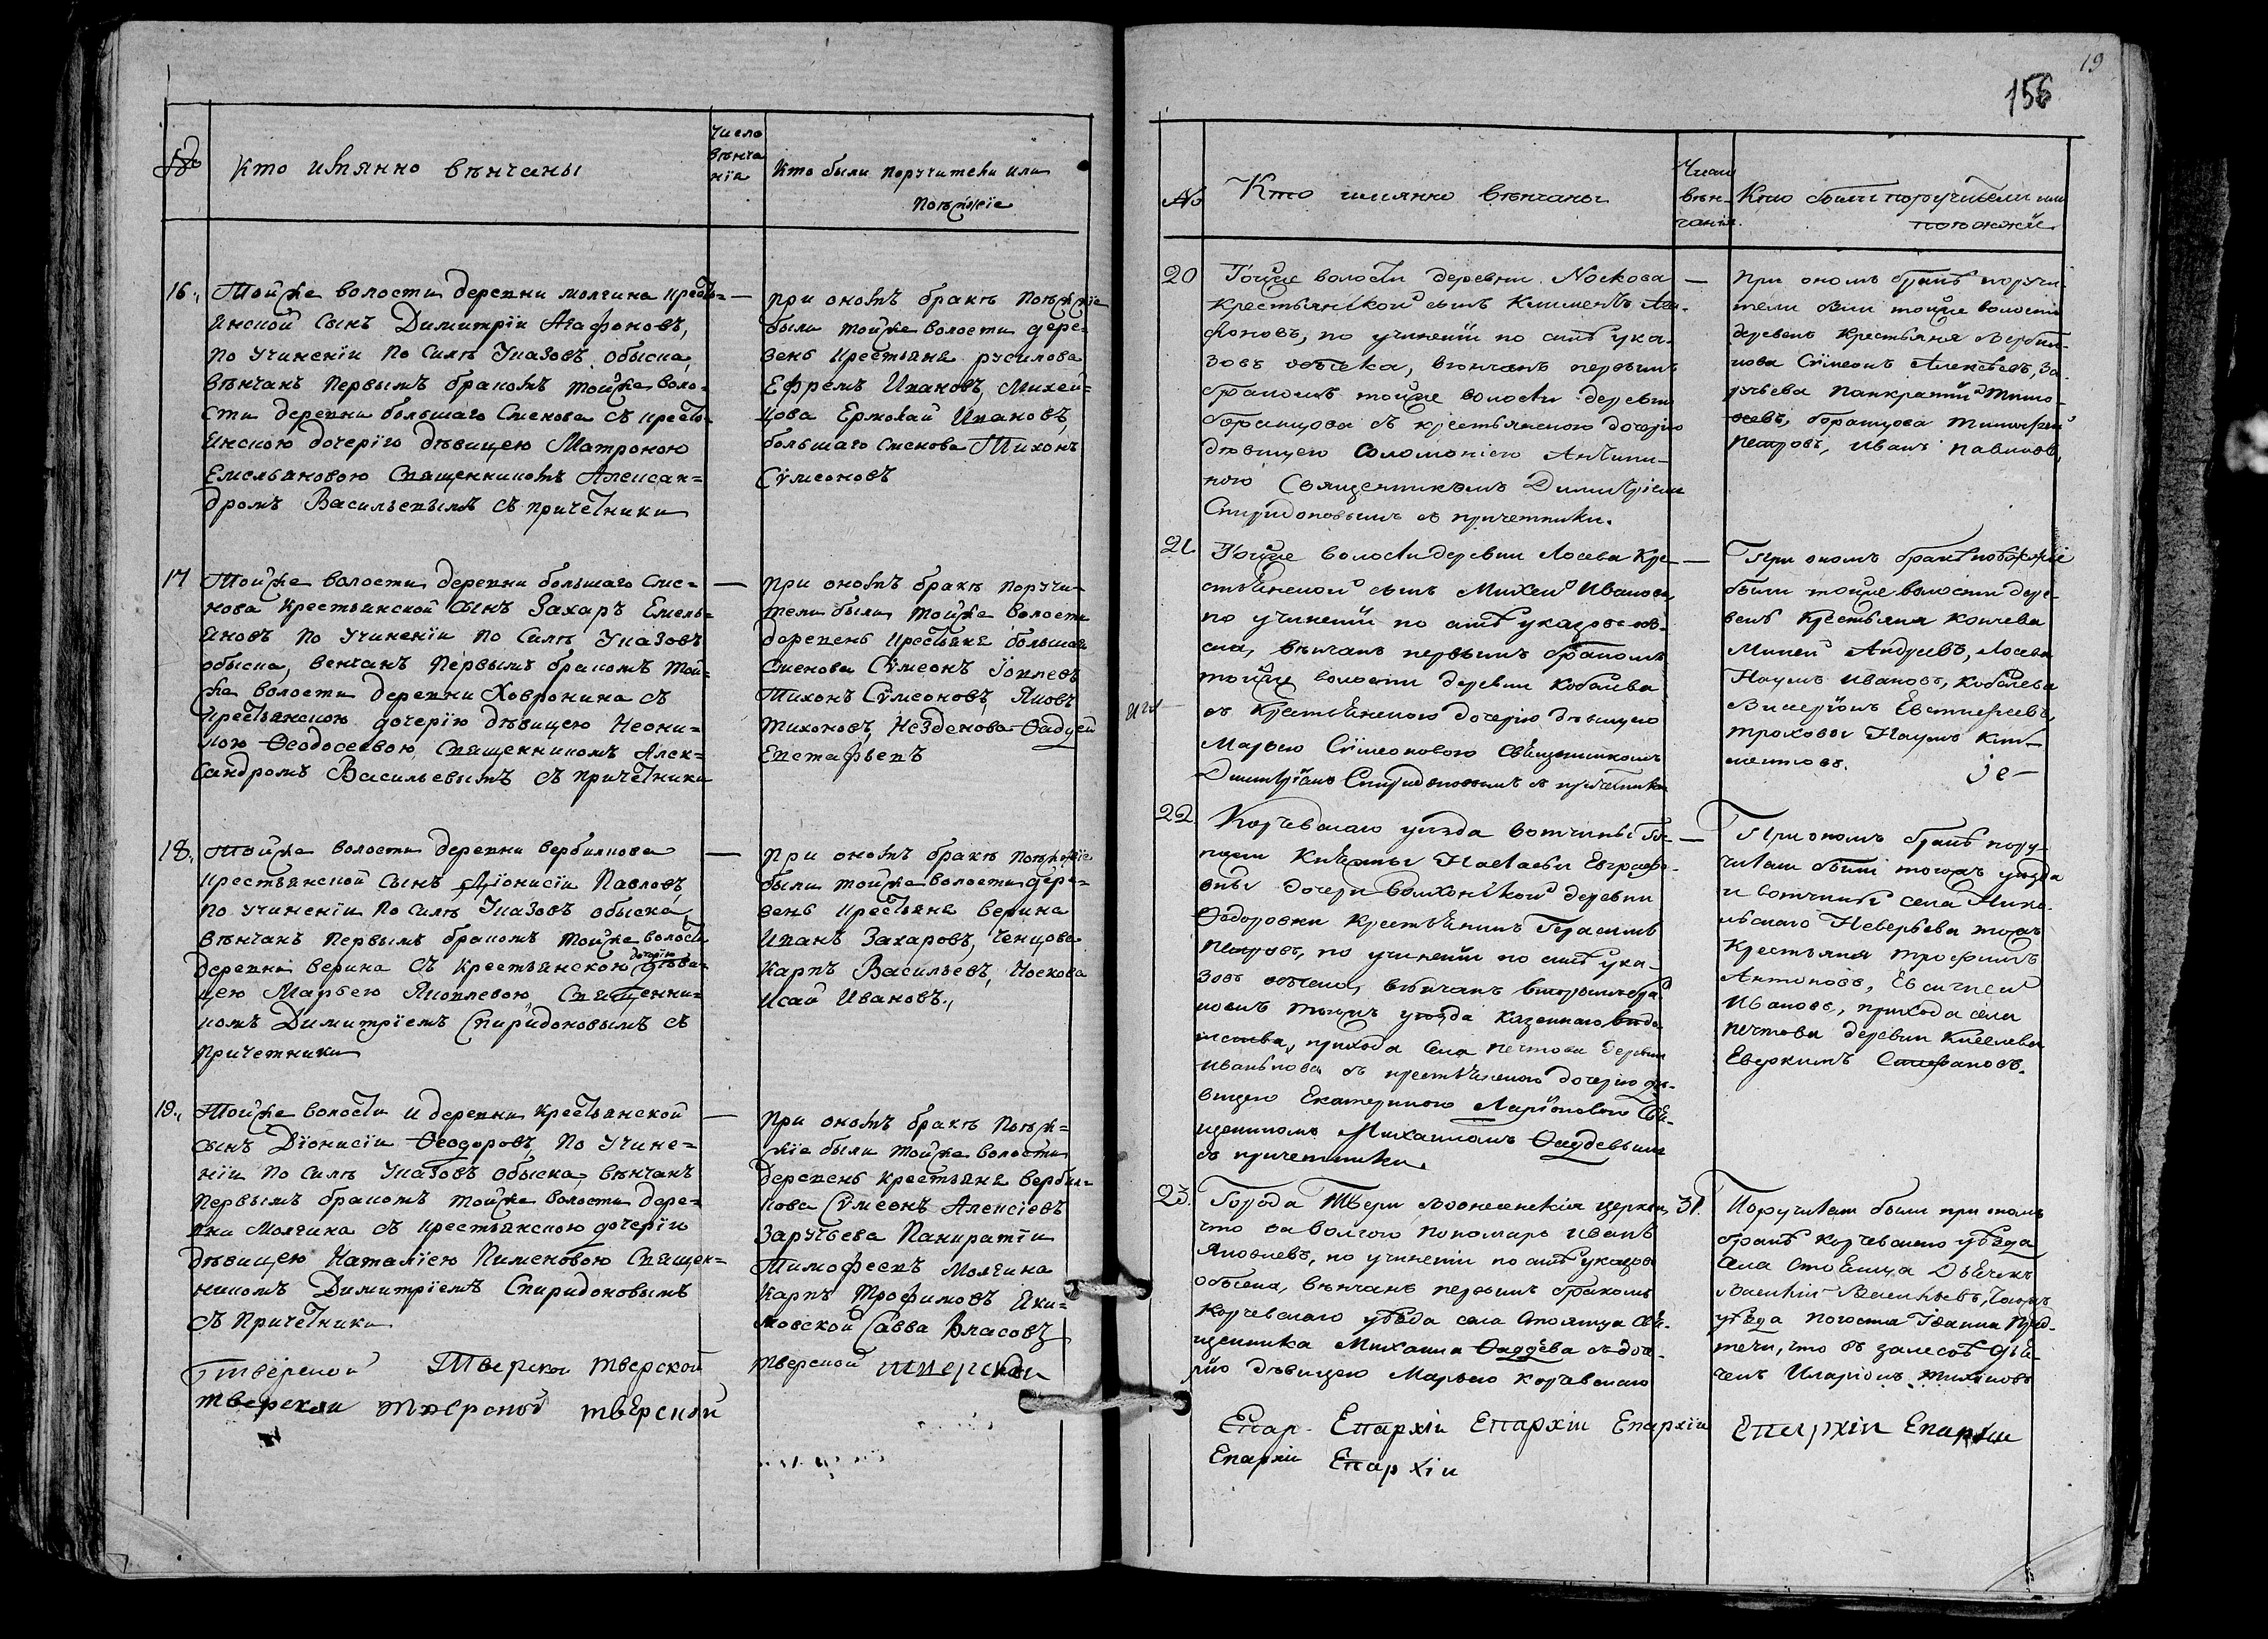 №
Кто имянно вѣнчаны
Число
вѣнча
нія
Кто были поручители или
поѣзжіе
16.
Тойже волости деревни молгина кресть=
янской сынъ Димитріи Агафоновъ,
по учиненіи по силѣ указовъ обыска,
вѣнчанъ первымъ бракомъ тойже воло=
сти деревни большаго Сменова съ кресть=
янскою дочерію дѣвицею Матроною
Емельяновою Священникомъ Алексан=
дромъ Васильевымъ съ причетники
—
при ономъ бракѣ поѣзжіе
были тойже волости дере=
вень крестьяня русилова
Ефремъ Ивановъ, Михей=
цова Ермолай Ивановъ,
большаго сменова Тихонъ
Сѵмеоновъ
17
Тойже волости деревни большаго Сме=
нова крестьянской сынъ Захаръ Емель=
яновъ по учиненіи по силѣ указовъ
обыска, венчанъ первымъ бракомъ той=
же волости деревни Ховронина съ
крестьянскою дочерію дѣвицею Неони=
лою Ѳеодосеевою, Священникомъ Алек=
сандромъ Васильевымъ съ причетники
—
при ономъ бракѣ поручи=
тели были тойже волости
деревень крестьяне большаго
Сменова Сѵмеонъ Іовлевъ
Тихонъ Сѵмеоновъ, Яковъ
Тихоновъ, Незденова Ѳадѣй
Евстафьевъ
18.
Тойже волости деревни вербилкова
крестьянской сынъ Діонисіи Павловъ,
по учиненіи по силѣ указовъ обыска,
вѣнчанъ первымъ бракомъ тойже волости
деревни верина съ крестьянскою дочерію дѣви=
цею Марьею Яковлевою, Священни=
комъ Димитріемъ Спиридоновымъ съ
причетники
—
при ономъ бракѣ поѣзжіе
были тойже волости дере=
вень крестьяне верина
Иванъ Захаровъ, Ченцова
Карпъ Васильевъ, Носкова
Исай Ивановъ.
19.
Тойже волости и деревни крестьянской
сынъ Діонисіи Ѳеодоровъ, по учине=
ніи по силѣ указовъ обыска, вѣнчанъ
первымъ бракомъ тойже волости дере=
вни Молгина съ крестьянскою дочерію
дѣвицею Наталіею Пименовою Священ=
никомъ Димитріемъ Спиридоновымъ
съ причетники
—
при ономъ бракѣ поѣз=
жіе были тойже волости
деревень крестьяне вербил=
кова Сѵмеонъ Алексіевъ
Заручьева Панкратіи
Тимофеевъ Молгина
Карпъ Трофимовъ Яки=
мовской Савва Власовъ
Тверской Тверской Тверской
тверской тверской тверской
тверской тверской
19
156
№
Кто имянно вѣнчаны
Число
вѣн-
чанія.
Кто были поручители или
поѣзжіи
20
Тойже волости деревни Носкова
крестьянской сынъ Климентъ Ага-
фоновъ, по учиненіи по силѣ ука-
зовъ обыска, вѣнчанъ первымъ
бракомъ тойже волости деревни
боранцова съ крестьянскою дочерію
дѣвицею Соломоніею Антипи-
ною Священникомъ Димитріемъ
Спиридоновымъ съ причетники.
—
при ономъ бракѣ поручи-
тели были тойже волости
деревень крестьяня Вербил-
кова Сѵмеонъ Алексѣевъ, За-
ручьева Панкратій Тимо-
ѳеевъ, боранцова Тимофей
Петровъ, Иванъ Павловъ,
21
Тойже волости деревни Лосева кре-
стьянской сынъ Михей Ивановъ
по учиненіи по силѣ указовъ об-
ска, вѣнчанъ первымъ бракомъ
тойже волости деревни Кобылева
съ крестьянскою дочерію дѣвицею
Марьею Сѵмеоновою Священникомъ
Димитріемъ Спиридоновымъ съ причетники
—
При ономъ бракѣ поѣзжіе
были тойже волости дере-
вень крестьяня Кончева
Михей Андреевъ, Лосева
Наумъ Ивановъ, Кобылева
Евстифеевъ,
Наумъ Кли-
ментовъ.
22
Корчевскаго уѣзда вотчины Гос-
пожи Княжны Настасьи Евграфо-
вны дочери Волконской деревни
Ѳедоровки крестьянинъ Герасимъ
Петровъ, по учиненіи по силѣ ука-
зовъ обыска, вѣнчанъ вторымъ бра-
комъ тогожъ уѣзда казеннаго вѣдо-
мства, прихода села печтова деревни
Иванькова съ крестьянскою дочерію дѣ-
вицею Екатериною Ларіоновою Свя-
щенникомъ Михаиломъ Ѳаддѣевымъ
съ причетники.
—
При ономъ бракѣ пору-
чители были тогожъ уѣзда
и вотчины села Нико-
льскаго Неверьева тожъ
крестьяня Трофимъ
Антоновъ, Евсигней
Ивановъ, прихода села
печтова деревни Киселева
Еверкимъ Степановъ.
23.
Города Твери Вознесенскія церкви,
что за Волгою пономарь Иванъ
Яковлевъ, по учиненіи по силѣ указовъ
обыска, вѣнчанъ первымъ бракомъ
Корчевскаго уѣзда села Стоянца Свя-
щенника Михаила Ѳаддѣева съ доче-
рію дѣвицею Марьею корчевскаго
31.
Поручители были при ономъ
бракѣ корчевскаго уѣзда
села Стоянца Дьячекъ
Василій Васильевъ, тогожъ
уѣзда погоста Іоанна Пред-
течи, что въ залесьѣ дья-
чекъ Иларіонъ Тихоновъ
Епар- Епархіи Епархіи Епархіи
Епархіи Епархіи
Епархіи Епархіи